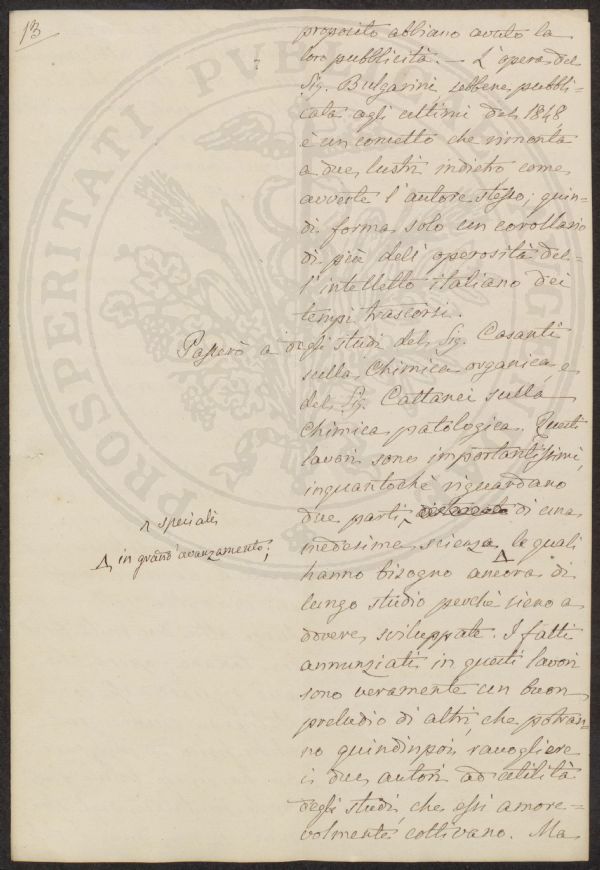 13
proposito abbiano avuto la
loro pubblicità. — L'opera del
Sig. Bulgarini, sebbene pubbli=
cata agli ultimi del 1848,
è un concetto che rimonta
a due lustri indietro come
avverte l'autore stesso; quin=
di forma solo un corollario
di più dell'operosità del=
l'intelletto italiano dei
tempi trascorsi.
Passerò a' degli studi del Sig. Casanti
sulla Chimica organica, e
del Sig. Cattanei sulla
Chimica patologica. Questi
lavori sono importantissimi,
inquantochè riguardano
due parti di una
speciali
medesima scienza, le quali
in grand'avanzamento;
hanno bisogno ancora di
lungo studio perchè sieno a
dovere sviluppate. I fatti
annunziati in questi lavori
sono veramente un buon
preludio di altri, che potran=
no quindinpoi ravogliere
i due autori ad utilità
degli studi, che essi amore=
volmente coltivano. Ma
PROSPERITATI PUBLICAE AUGENDAE